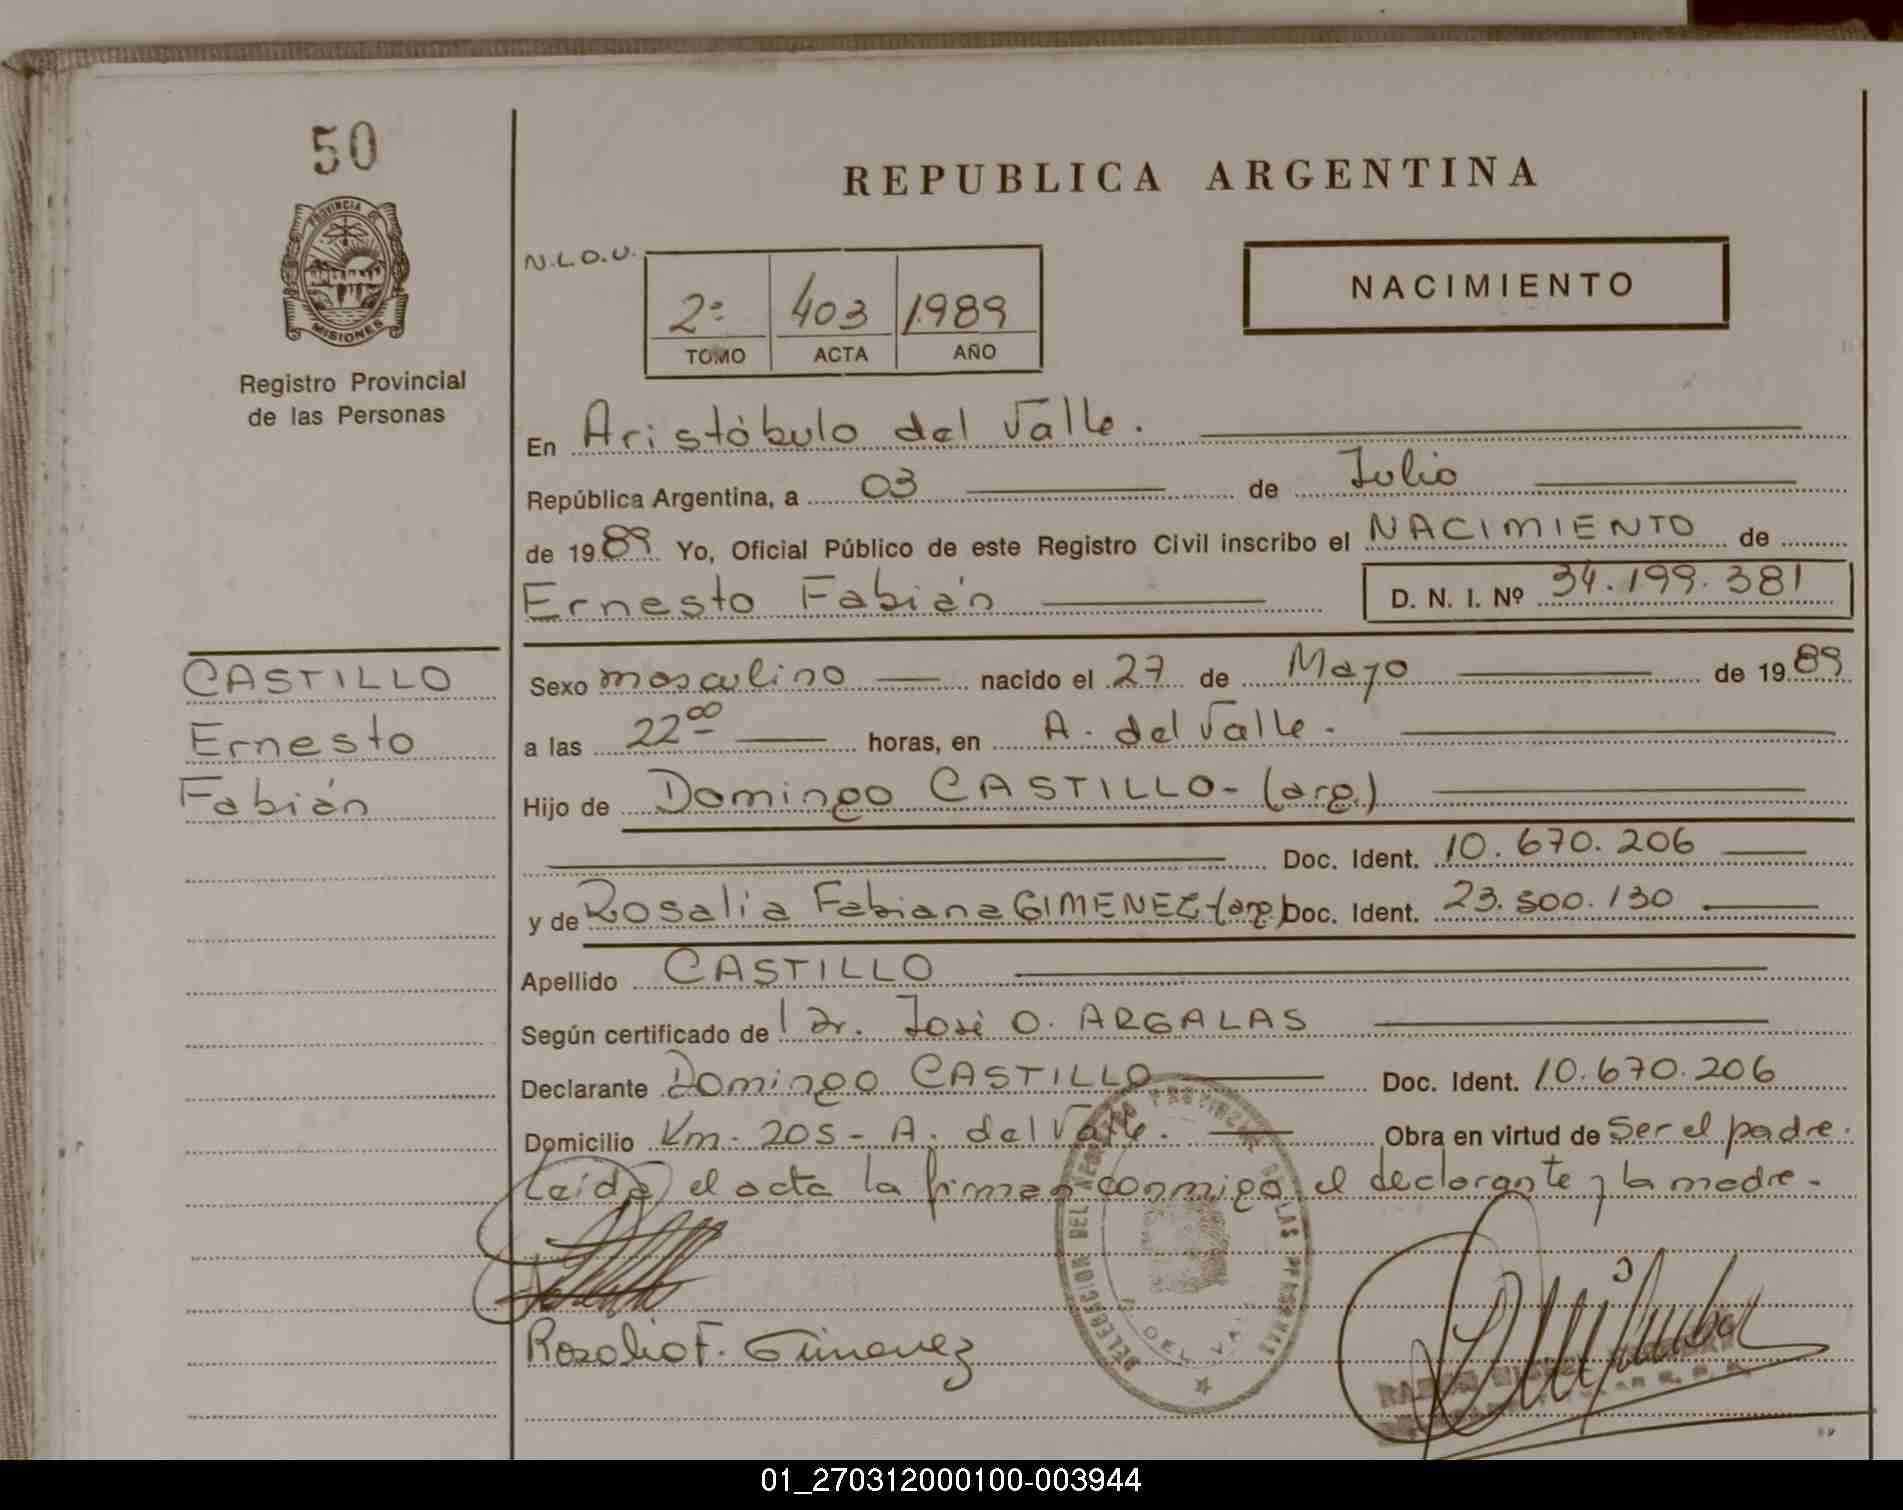 50
PROVINCIA DE
MISIONES
Registro Provincial
de las Personas
REPUBLICA ARGENTINA
N.L.O.U.
2º 403 1989
TOMO ACTA AÑO
NACIMIENTO
En Aristóbulo del Valle.
República Argentina, a 03 de Julio
de 1989 Yo, Oficial Público de este Registro Civil inscribo el NACIMIENTO de
Ernesto Fabián D. N. I. Nº 34.199.381
CASTILLO
Ernesto
Fabián
Sexo masculino nacido el 27 de Mayo de 1989
a las 22⁰⁰ horas, en A. del Valle.
Hijo de Domingo CASTILLO- (arg.)
Doc. Ident. 10.670.206
y de Rosalia Fabiana GIMENEZ-(arg) Doc. Ident. 23.500.130
Apellido CASTILLO
Según certificado de l Dr. José O. ARGALAS
Declarante Domingo CASTILLO Doc. Ident. 10.670.206
Domicilio Km. 205 - A. del Valle. Obra en virtud de Ser el padre.
Leida el acta la firman conmigo el declarante y la madre.
DELEGACION DEL REGISTRO PROVINCIAL DE LAS PERSONAS
A. DEL VALLE
Rosalia F. Gimenez
01_270312000100-003944